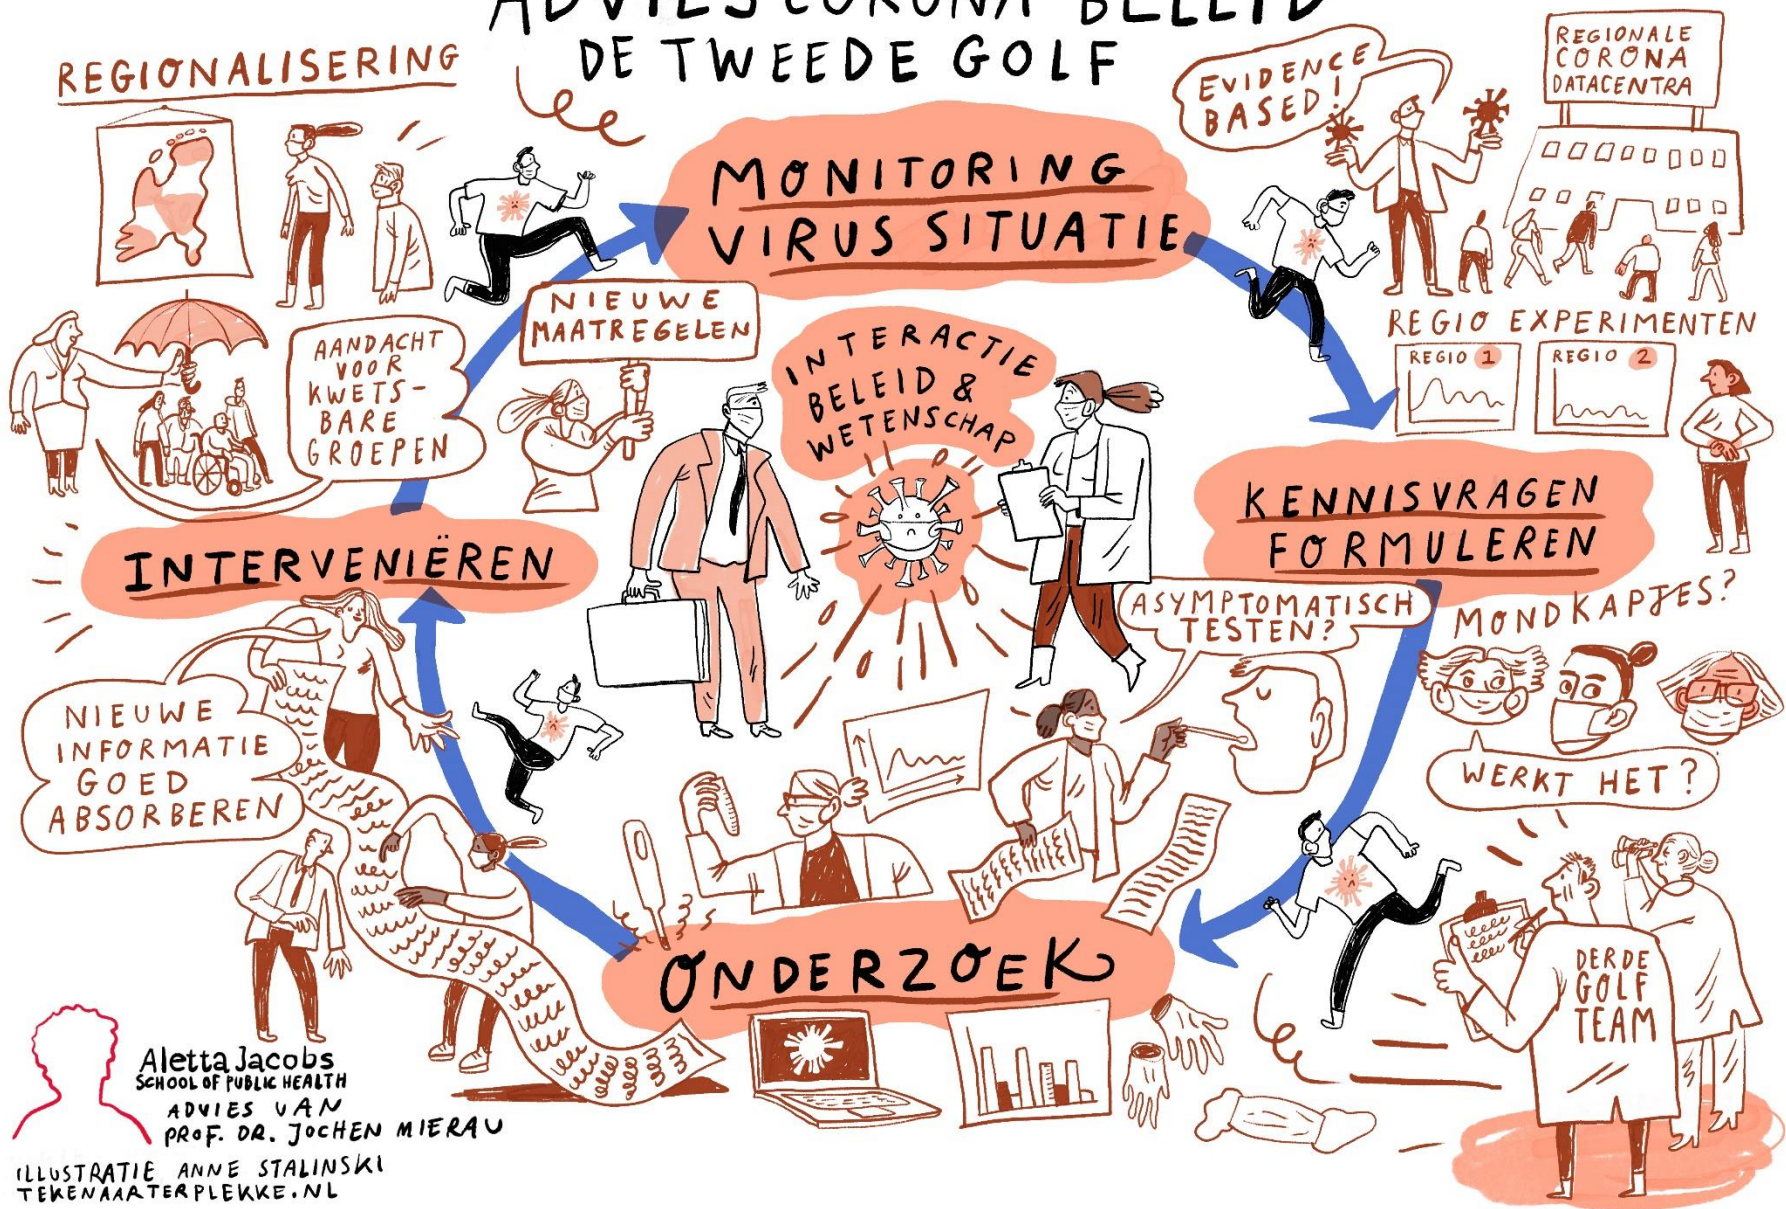 ADVIES CORONA BELEID
DE TWEEDE GOLF
REGIONALISERING
EVIDENCE
BASED!
REGIONALE
CORONA
DATACENTRA
MONITORING
VIRUS SITUATIE
NIEUWE
MAATREGELEN
AANDACHT
VOOR
KWETS-
BARE
GROEPEN
INTERACTIE
BELEID &
WETENSCHAP
REGIO EXPERIMENTEN
REGIO 1
REGIO 2
KENNISVRAGEN
FORMULEREN
INTERVENIËREN
ASYMPTOMATISCH
TESTEN?
MONDKAPJES?
WERKT HET?
NIEUWE
INFORMATIE
GOED
ABSORBEREN
ONDERZOEK
DERDE
GOLF
TEAM
Aletta Jacobs
SCHOOL OF PUBLIC HEALTH
ADVIES VAN
PROF. DR. JOCHEN MIERAU
ILLUSTRATIE ANNE STALINSKI
TEKENAARTERPLEKKE.NL